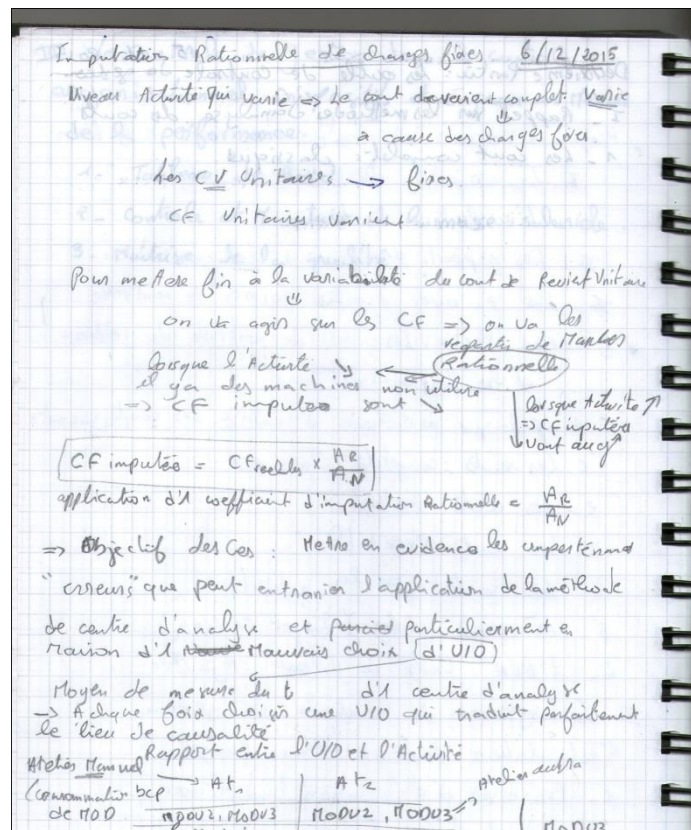 Imputation Rationnelle de charges fixes 6/12/2015
Niveau Activité qui varie => Le cout de revient complet Varie
à cause des charges fixes
Les CV Unitaires → fixes
CF Unitaires varient
Pour mettere fin à la variabilité du cout de Revient Unitaire
on va agir sur les CF => on va les
repartir de Manière
Rationnelle
lorsque l'Activité ↘
il y a des machines non utilisé
=> CF imputés sont ↘
lorsque Activité ↗
=> CF imputées
vont aug ↗
CF imputés = CF reelles x AR/AN
application d'1 coefficient d'imputation Rationnelle = AR/AN
=> Objectif des Cas : Metre en evidence les
"erreurs" que peut entrainer l'application de la méthode
de centre d'analyse et particulierment en
raison d'1 Mauvais choix d'UO
Moyen de mesure du t d'1 centre d'analyse
→ A chaque fois choisir une UO qui traduit parfaitement
le lien de causalité
Rapport entre l'UO et l'Activité
Atelier Manuel → At1 At2 Atelier
(consommation bcp
de MOD MODU2, MODU3 MODU2, MODU3 MODU3